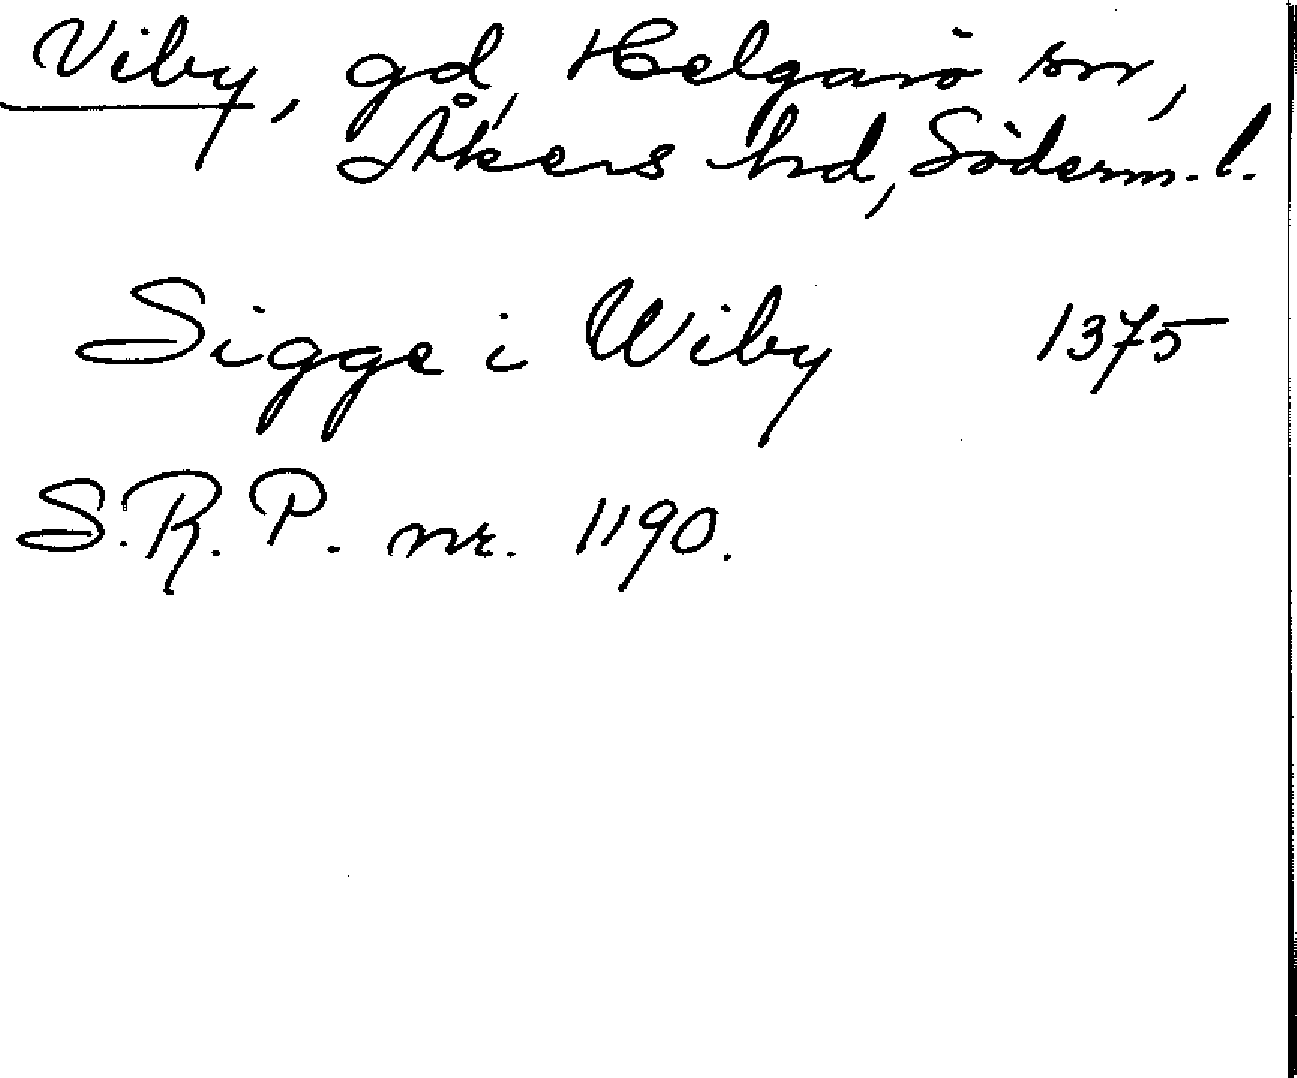 Viby, gd, Helgarö sn,
Åkers hd, Söderm. l.
Sigge i Wiby 1375
S.R.P. nr. 1190.